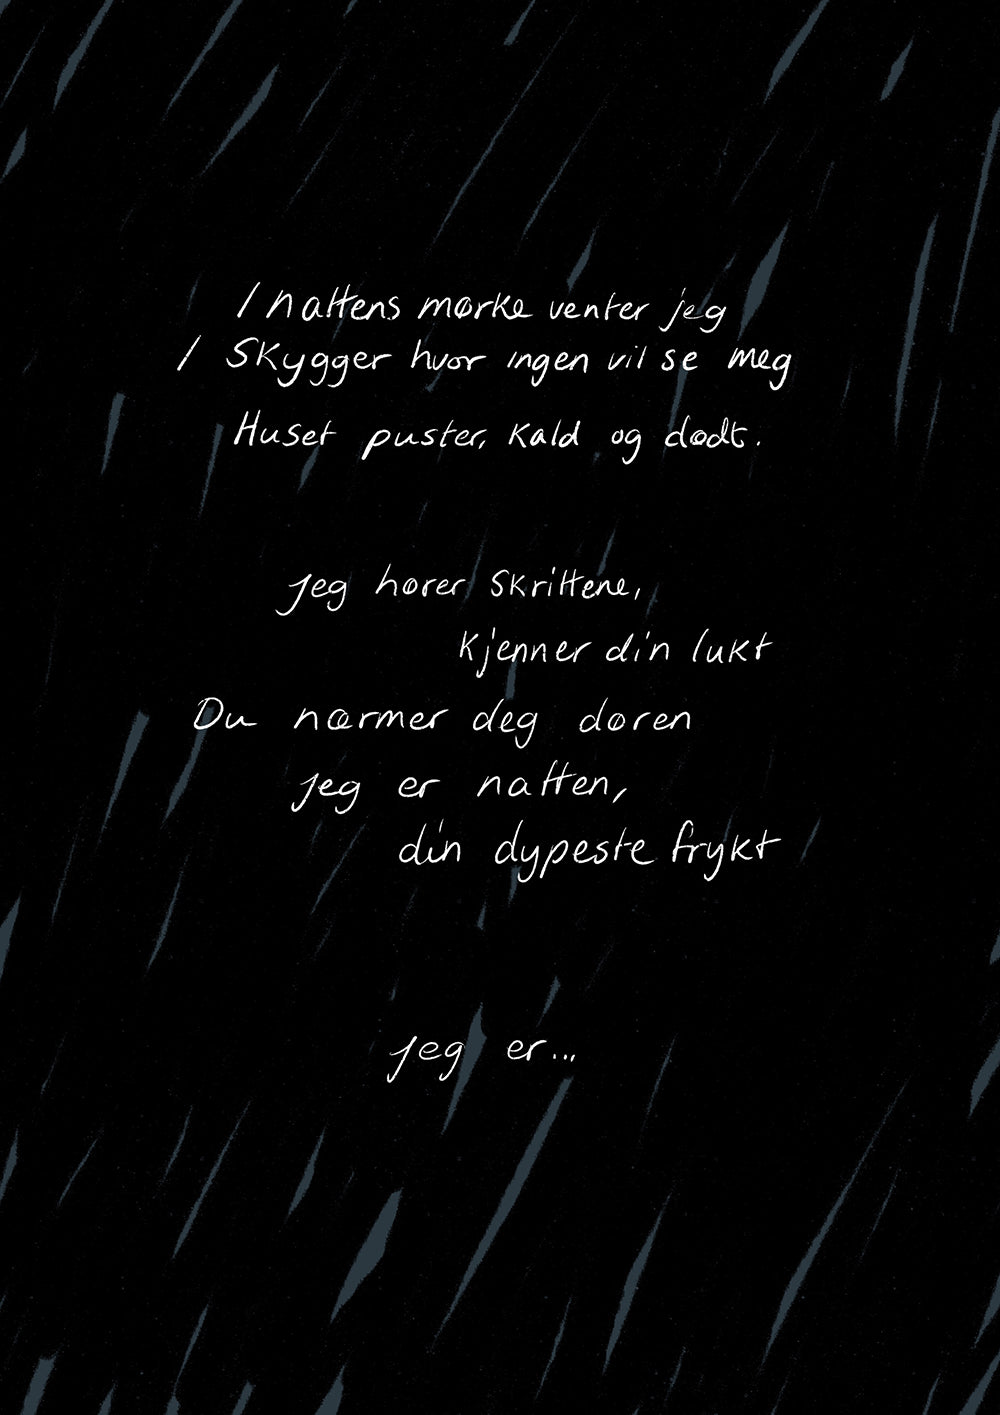 I nattens mørke venter jeg
I skygger hvor ingen vil se meg
Huset puster, kald og dødt.
Jeg hører skrittene,
kjenner din lukt
Du nærmer deg døren
Jeg er natten,
din dypeste frykt
Jeg er...